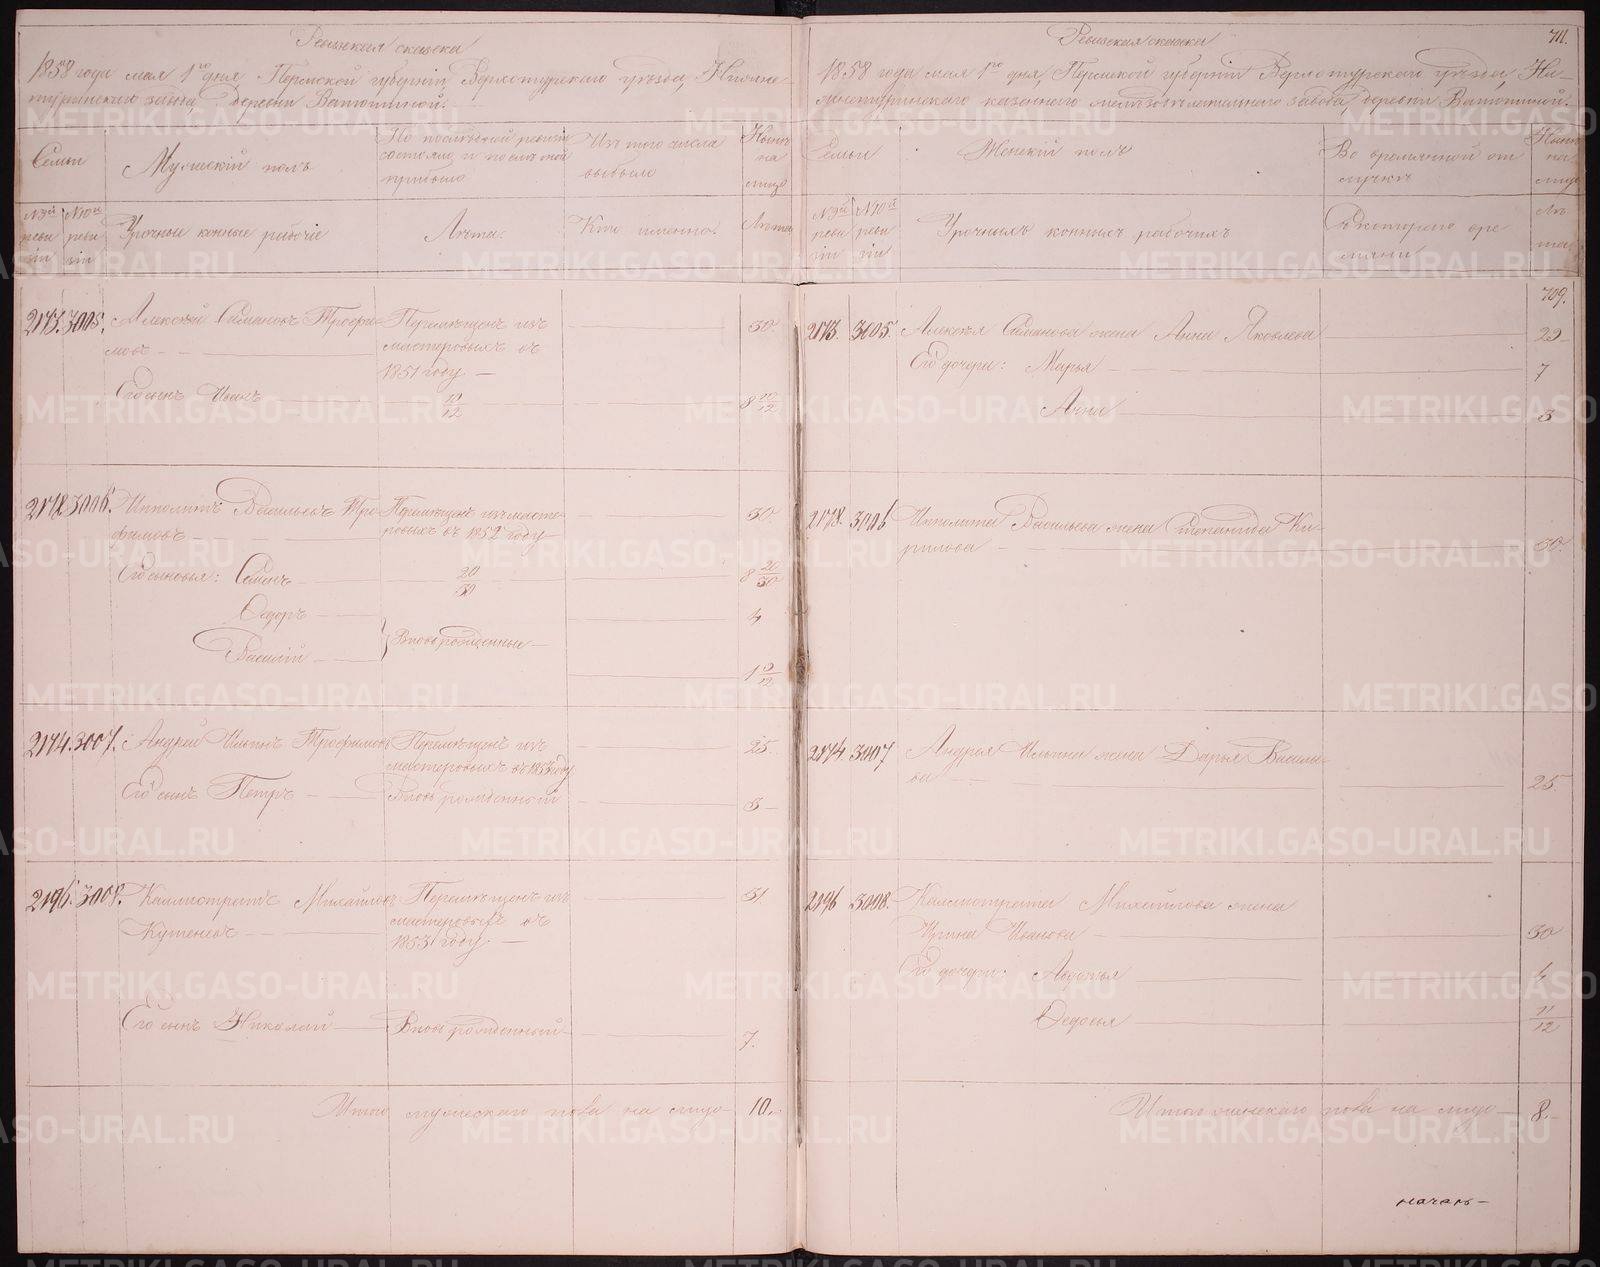 Ревизская сказка
1858 года мая 1го дня Пермской губернiи Верхотурскаго уѣзда, Нижне-
туринскаго завода, деревни Ватюшиной.
Семьи
Мужескiй полъ
По послѣдней ревизiи
состояло и послѣ оной
прибыло
Изъ того числа
выбыло
Нынѣ
на
лицо
№ 9й ревизiи
№ 10й ревизiи
Урочные конные рабочiе
Лѣта:
Кто именно:
Лѣта
2173. 3005. Алексѣй Симановъ Трофи- Перемѣщенъ изъ 30.
мовъ мастеровыхъ въ
1851 году
Его сынъ Иванъ 10/12 8 10/12
2178 3006. Ипполитъ Васильевъ Тро- Перемѣщенъ изъ масте- 30.
фимовъ ровыхъ въ 1852 году
Его сыновья: Семенъ 20/30 8 20/30
Ѳедоръ 4
Вновь рожденные
Василiй 1 9/12
2174. 3007. Андрей Ильинъ Трофимовъ Перемѣщенъ изъ 25.
мастеровыхъ въ 1853 году
Его сынъ Петръ Вновь рожденный 3
2196. 3008. Каллистратъ Михайловъ Перемѣщенъ изъ 31
Кутеневъ мастеровыхъ въ
1853 году
Его сынъ Николай Вновь рожденный 7.
Итого мужескаго пола на лицо 10.
711.
Ревизская сказка
1858 года мая 1го дня, Пермской губернiи Верхотурскаго уѣзда, Ни-
жнетуринскаго казеннаго желѣзодѣлательнаго завода, деревни Ватюшиной.
Семьи
Женскiй полъ
Во временной от
лучкѣ
Нынѣ
на
лицо
№ 9й ревизiи
№ 10й ревизiи
Урочныхъ конныхъ рабочихъ
Съ котораго вре
мяни
Лѣ
та
709.
2173. 3005. Алексѣя Симанова жена Анна Яковлева 29
Его дочери: Марья 7
Анна 3
2178. 3006 Ипполита Васильева жена Степанида Ки-
рилова 30.
2174. 3007 Андрея Ильина жена Дарья Василь-
ева 25.
2196 3008. Каллистрата Михайлова жена
Ирина Иванова 30
Его дочери: Авдотья 4
Ѳедосья 11/12
Итого женскаго пола на лицо 8.
началь-
METRIKI.GASO-URAL.RU